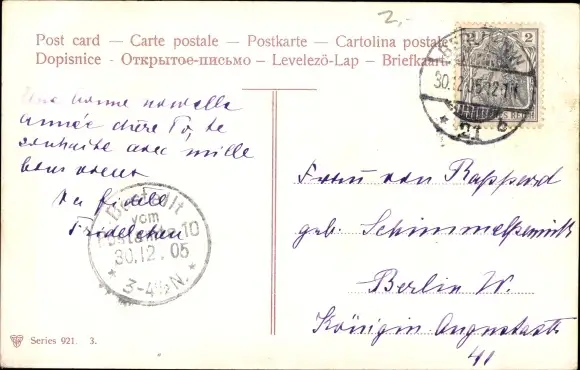 2,-
Post card — Carte postale — Postkarte — Cartolina postale
Dopisnice - Открытое-письмо – Levelező-Lap – Briefkaart
2
BERLIN NW
30.12.05.12-1N
* 21 c
Une bonne nouvelle
année chère To, te
souhaite avec mille
bons voeux
ta fidèle
Friedelchen
Bestellt
vom
Postamte 10
30.12.05
* 3-4½N. *
Frau von Rapperd
geb. Schimmelpennink
Berlin W.
Königin Augustastr
41
Series 921. 3.